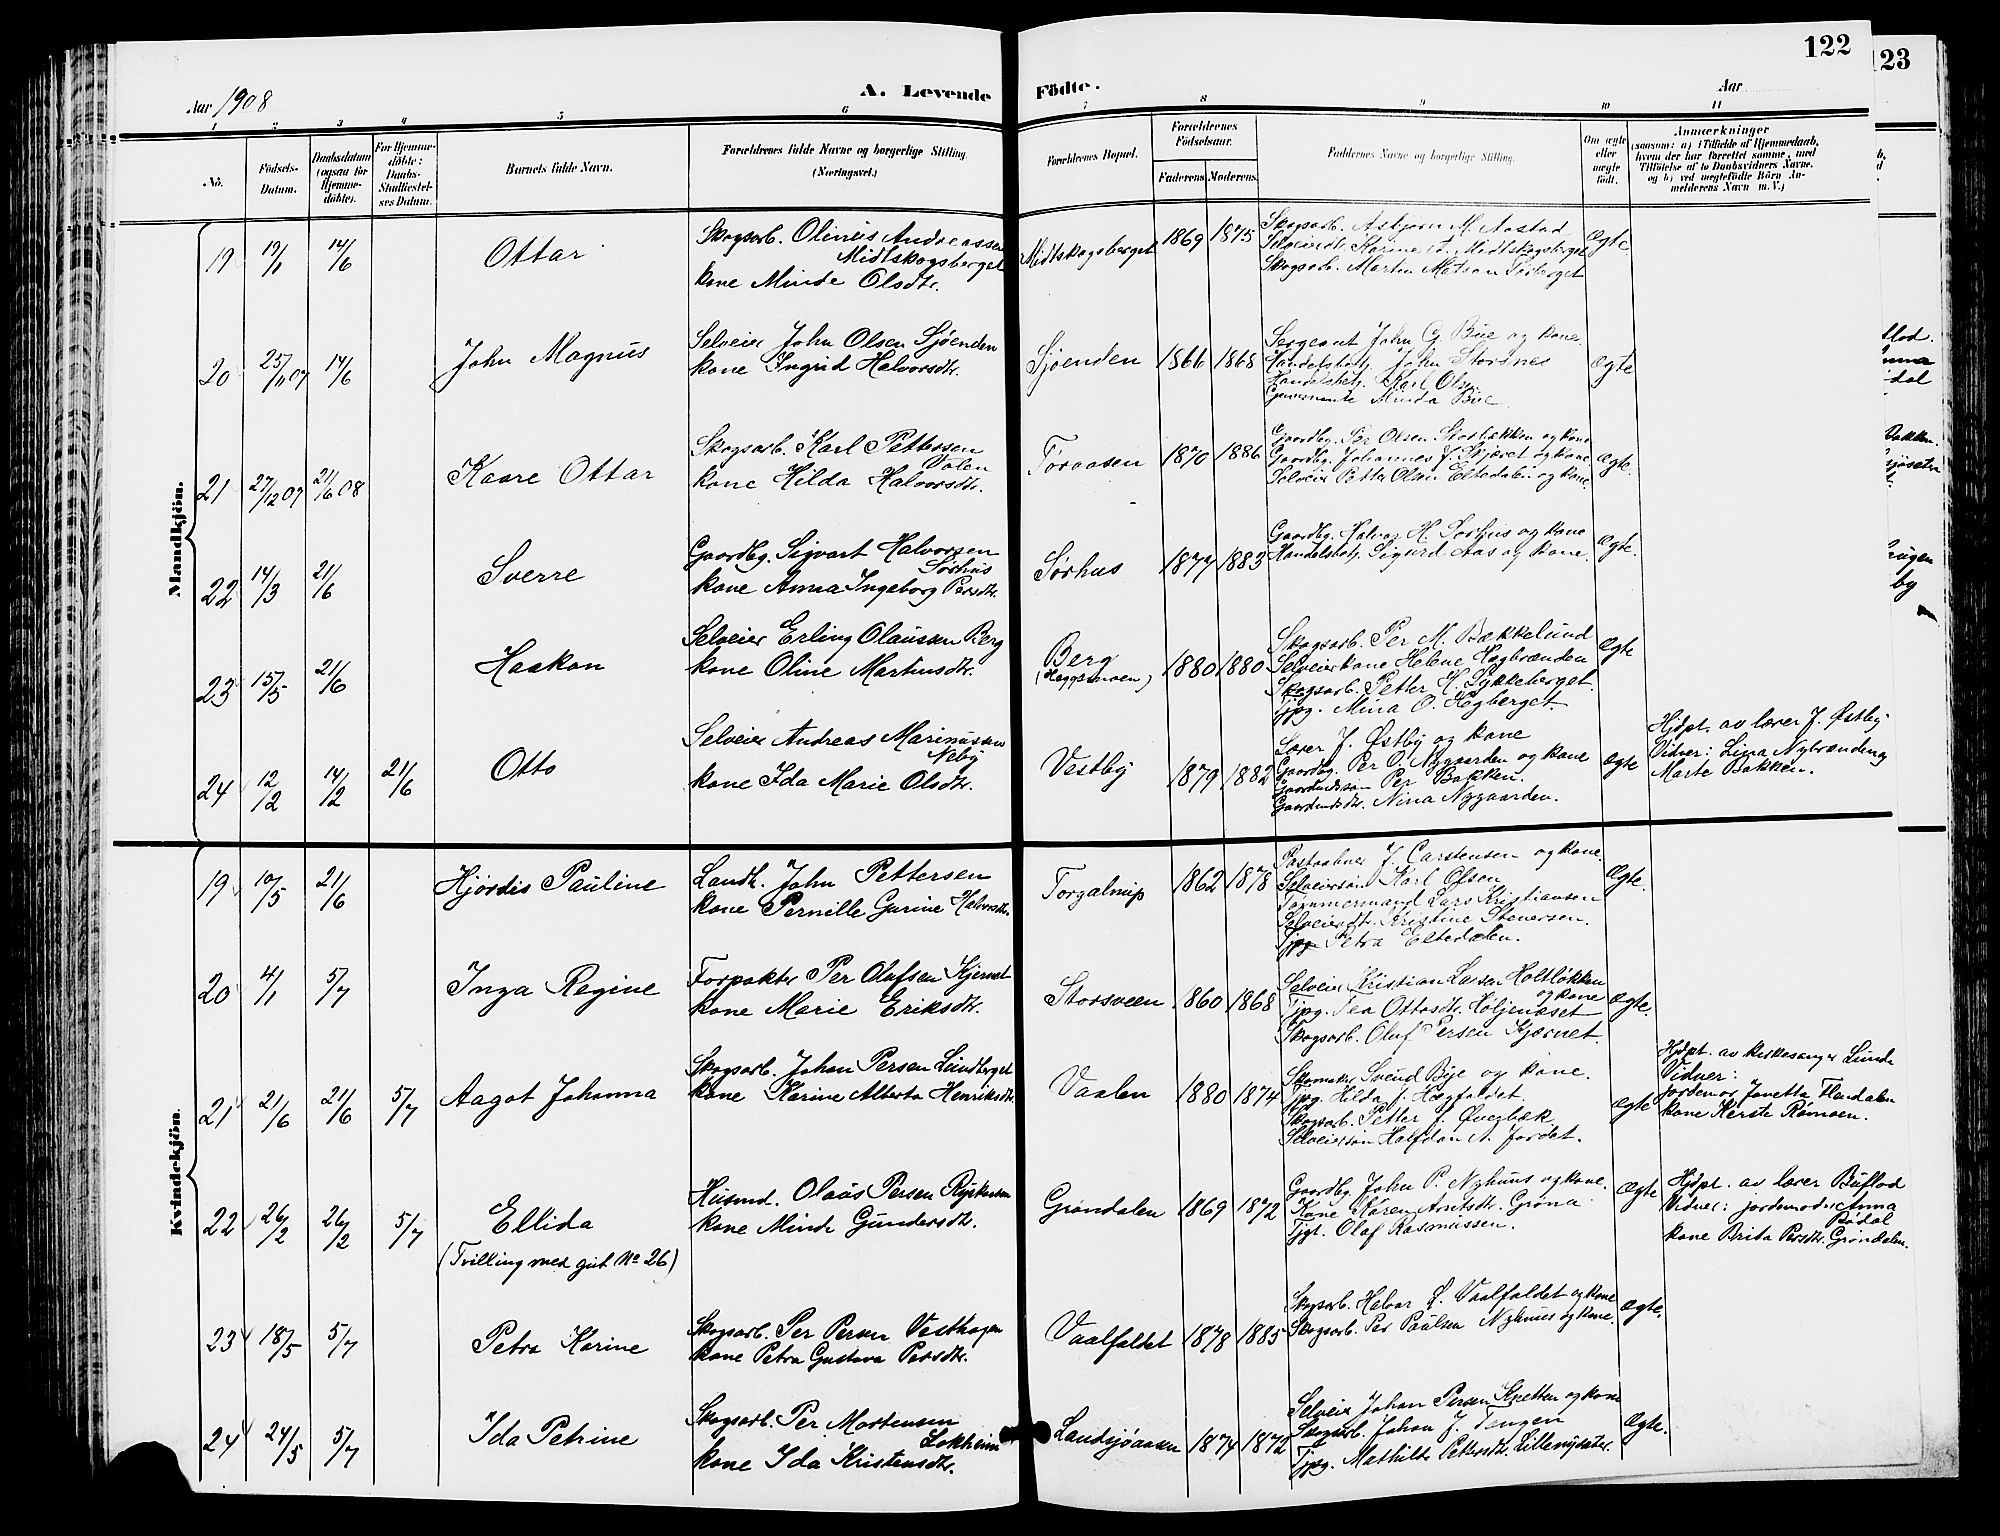 122
123
Aar 1908
A. Levende Födte.
Aar
1 2 3 4 5 6 7 8 9 10 11
No.
Födsels-Datum.
Daabsdatum (ogsaa for Hjemme-döbte).
For Hjemme-döbte: Daabs-Stadfæstel-ses Datum.
Barnets fulde Navn.
Forældrenes fulde Navne og borgerlige Stilling. (Næringsvei.)
Forældrenes Bopæl.
Forældrenes Födselsaar.
Faderens. Moderens.
Faddernes Navne og borgerlige Stilling.
Om ægte eller uægte født.
Anmærkninger
(saasom: a) i Tilfælde af Hjemmedaab, hvem der har forrettet samme, med Tilföielse af to Daabsvidners Navne. og b) ved uægtefödte Börn Anmelderens Navn m. V.)
Mandkjön.
19 19/1 14/6 Ottar
Skogsarb. Olinus Andreassen
Midtskogsberget
kone Minde Olsdtr.
Midtskogsberget 1869 1875
Skogsarb. Asbjørn M. Aastad
Selveierdt. Karine A. Midtskogsberget
Skogsarb. Martin Matson
Ægte.
20 25/11 07 14/6 John Magnus
Selveier John Olsen Sjøenden
kone Ingrid Halvorsdtr.
Sjøenden 1866 1868
Sergeant John G. Bue og kone
Handelsbetj. John Storsnes
Handelsbetj. Karl Olsen
Guvernante Minda Bue
Ægte
21 27/12 07 21/6 08 Kaare Ottar
Skogsarb. Karl Pettersen
kone Hilda Halvorsdtr.
Føraasen 1870 1886
Gaardbg. Per Olsen Storbækken og kone
Gaardbg. Johannes J. Skjæret og kone
Selveier Petter Olsen Eltedalen og kone
Ægte.
22 14/3 21/6 Sverre
Gaardbg. Sigvart Halvorsen
Sørhus
kone Anna Ingeborg Persdtr.
Sørhus 1877 1883
Gaardbg. Halvor H. Sørhus og kone
Handelsbetj. Sigurd Aas og kone
Ægte.
23 15/5 21/6 Haakon
Selveier Erling Olausen Berg
kone Oline Martinsdtr.
Berg 1880 1880
Skogsarb. Per M. Bækkelund
Selveierkone Helene Hagbrænden
Skogsarb. Petter H. Lykkeberget.
Tjpg. Mina O. Hegberget.
Ægte
24 12/2 14/2 21/6 Otto
Selveier Andreas Marinussen
Neby
kone Ida Marie Olsdtr.
Vestby 1879 1882
Lærer J. Østby og kone
Gaardbg. Per O. Nygaarden og kone
Gaardmdssøn Per Bakken.
Gaardmdsdtr. Nina Nygaarden.
Ægte
Hjdpt. av lærer J. Østby.
Vidner: Lina Nybrænden og
Marte Bakken.
Kvindekjön.
19 10/5 21/6 Hjørdis Pauline
Landh. John Pettersen
kone Pernille Gurine Halvorsdtr.
1862 1878
Postaabner J. Carstensen og kone.
Selveiersøn Karl Olsen
Tømmermand Lars Kristiansen
Selveierdtr. Kristine Stenersen.
Tjpg. Petra Eltedalen.
Ægte.
20 4/1 5/7 Inga Regine
Forpakter Per Olufsen Kjernet
kone Marie Eriksdtr.
Storsveen 1860 1868
Selveier Kristian Larsen Holtløkken
og kone
Tjpg. Tea Ottosdtr. Høljenæset
Skogsarb. Oluf Persen Kjærnet.
Ægte.
21 21/6 21/6 5/7 Aagot Johanna
Skogsarb. Johan Persen Lundberget
kone Karine Alberta Henriksdtr.
Vaalen 1880 1874
Skomaker Svend Bye og kone.
Tjpg. Hilda J. Hagfaldet.
Skogsarb. Petter J. Øverbæk.
Selveiersøn Halfdan A. Jordet.
Ægte
Hjdpt. av kirkesanger Lunde
Vidner:
Jordemor Janetta Flendalen
kone Kerste Rømoen.
22 26/2 26/2 5/7 Ellida
(Tvilling med gut No 26)
Husmd. Olaus Persen
kone Minda Gundersdtr.
Grøndalen 1869 1872
Gaardbg. John P. Nyhuus og kone.
Kone Karen Arntsdtr. Grøna
Tjgt. Olaf Rasmussen.
Ægte
Hjdpt. av lærer Buflod
Vidner: jordemoder Anna
Bødal
kone Brita Persdtr. Grøndalen.
23 18/5 5/7 Petra Karine
Skogsarb. Per Persen Vesthagen
kone Petra Gustava Persdtr.
Vaalfaldet 1878 1885
Skogsarb. Halvor L. Vaalfaldet og kone
Skogsarb. Per Paulsen Nyhuus og kone.
Ægte.
24 24/5 5/7 Ida Petrine
Skogsarb. Per Mortensen
Lokheim
kone Ida Kristensdtr.
Landsjøaasen 1874 1872
Selveier Johan Persen Knetten og kone
Skogsarb. Johan J. Tangen
Tjpg. Mathilde Pettersdtr.
Ægte.